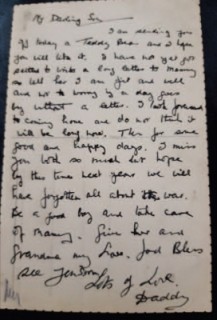 My Darling Son
I am sending you
off today a Teddy Bear and I hope
you will like it. I have not yet got
settled to write a long letter to Mummy
so tell her I am fit and well
and not to worry if a day goes
by without a letter. I look forward
to coming home and do not think it
will be long now. Then for some
good and happy days. I miss
you both so much but hope
by this time next year we will
have forgotten all about the war.
Be a good boy and take care
of Mummy. Give her and
Grandma my love. God Bless
Lots of Love.
Daddy